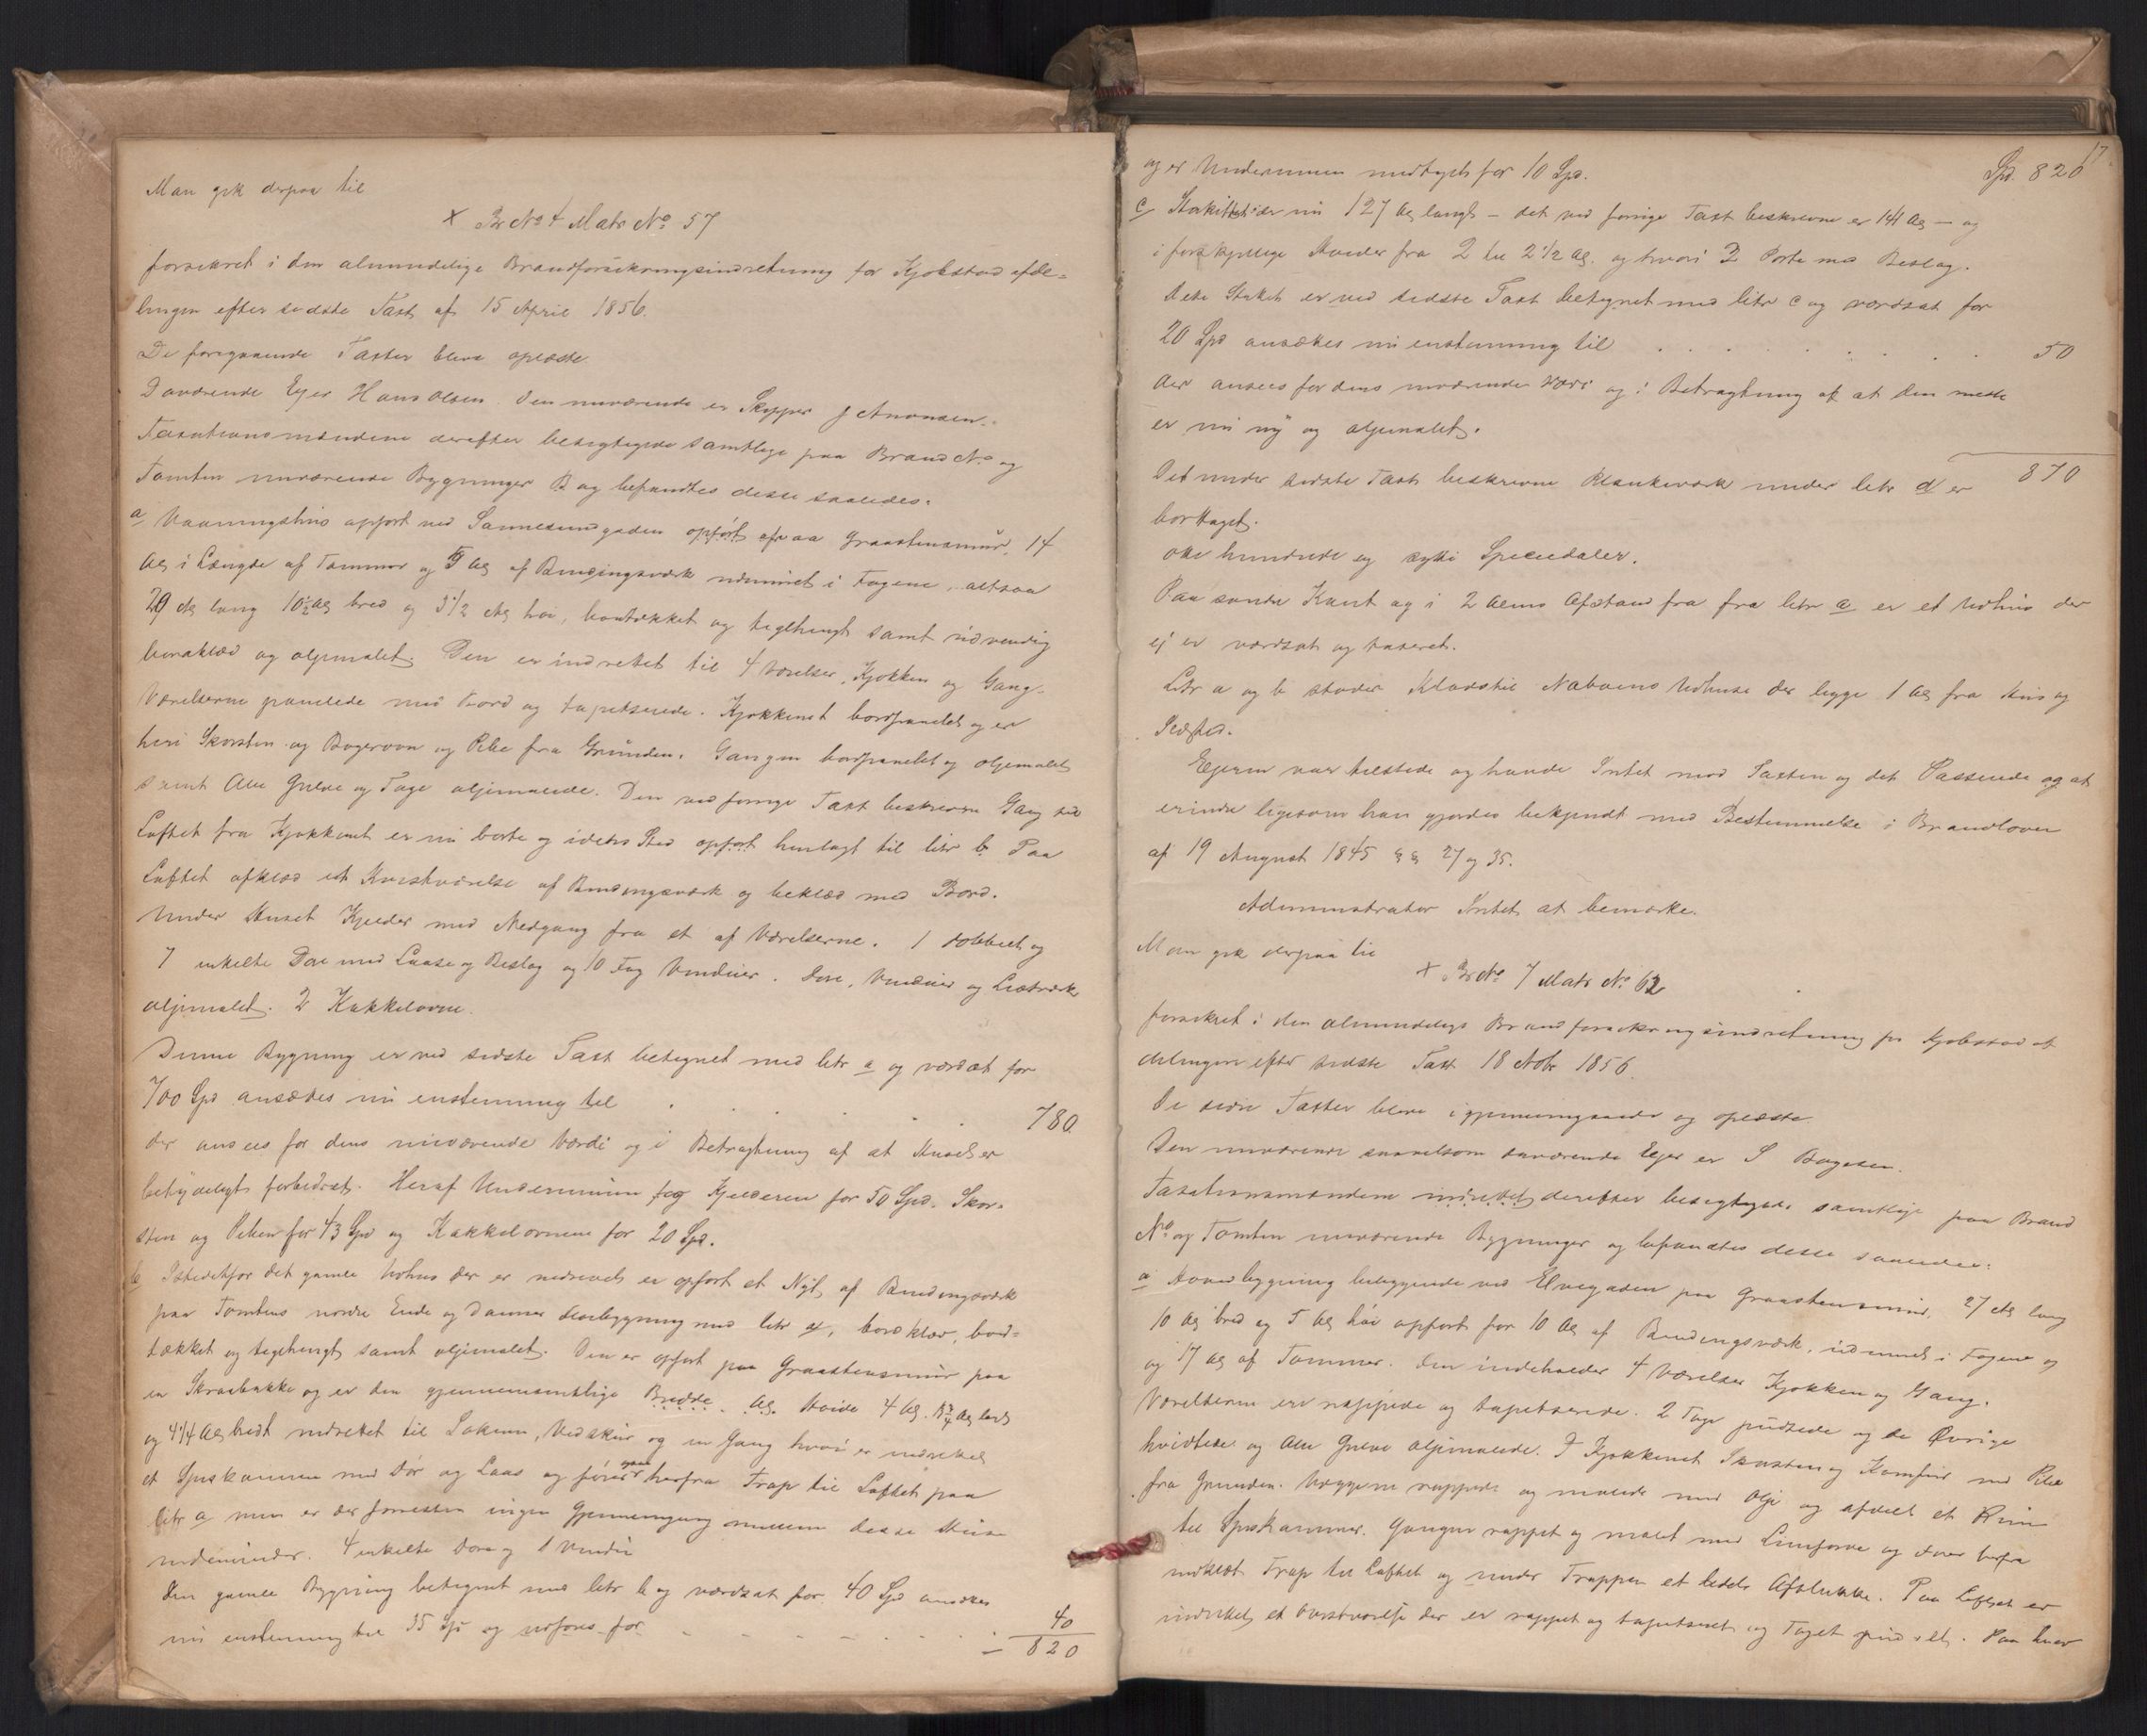 Man gik derpaa til
x Br No 4 Matr No 57
forsikret i den almindelige Brandforsikringsindretning for Kjøbstad afde=
lingen efter sidste Taxt af 15 April 1856.
De foregaaende Taxter bleve oplæste
Daværende Ejer Hans Olsen. Den nuværende er Skipper J Amonsen.
Taxationsmændene derefter besigtigede samtlige paa Brand No og
Tomten nuværende Bygninger og befandtes disse saaledes:
a Vaaningshus opført ved Sannesundgaden opført paa Graastensmur, 14
Al i Længde af Tømmer og Al af Bindingsværk udmuret i Fagene, altsaa
Al lang 10½ Al bred og 3½ Al høi, bordtækket og teglhængt samt udvendig
bordklæd og oljemalet. Den er indrettet til 4 Værelser, Kjøkken og Gang.
Værelserne panelede med Bord og tapetserede. Kjøkkenet bordpanelet og er
heri Skorsten og Bagerovn og Pibe fra Grunden. Gangen bordpanelet og oljemalet
samt Alle Gulve og Tage oljemalede. Den ved forrige Taxt beskrevne Gang til
Loftet fra Kjøkkenet er nu borte og i dets Sted opført henlagt til litr b. Paa
Loftet afklæd et Kvistværelse af Bindingsværk og beklæd med Bord.
Under Huset Kjelder med Nedgang fra et af Værelserne. 1 dobbelt og
7 enkelte Døre med Laase og Beslag og 10 Fag Vinduer. Døre, Vinduer og Listværk
oljemalet. 2 Kakkelovne.
Denne Bygning er ved sidste Taxt betegnet med litr a og værdsat for
700 Spd ansattes nu enstemmig til . . . . . 780.
der ansees for dens nuværende Værdi og i Betragtning af at Huset er
betydeligt forbedret. Heraf Undermuren og Kjelderen for 50 Spd. Skor=
sten og Piben for 43 Spd og Kakkelovnene for 20 Spd.
b Istedetfor det gamle Udhus der er nedrevet er opført et Nyt af Bindingsværk
paa Tomtens nordre Ende og danner Senbygning med litr a, bordklæd, bord=
tækket og teglhængt samt oljemalet. Den er opført paa Graastensmur paa
en Skraabakke og er den gjennemsnitlige Bredde Al. Høide 4 Al. Al lang
og 4¼ Al bredt indrettet til Lokum, Vedskur og en Gang hvori er indrettet
et Spiskammer med Dør og Laas og fører herfra Trap til Loftet paa
litr a men er der forresten ingen Gjennemgang mellem disse Huse
indenunder. 4 enkelte Døre og 1 Vindu
Den gamle Bygning betegnet med litr b og værdsat for 40 Spd ansættes
nu enstemmig til 35 Spd og udføres for . . . . . 40
820
17
og er Undermuren medtaget for 10 Spd. Spd. 820
c Stakittet der nu 127 Al langt - det ved forrige Taxt beskrevne er 141 Al - og
i forskjellige Høider fra 2 til 2½ Al. og hvori 2 Porte med Beslag.
Dette Stakit er ved sidste Taxt betegnet med litr c og værdsat for
20 Spd ansættes nu enstemmig til . . . . . 50
der ansees for dens nuværende Værdi og i Betragtning af at den meste
er nu ny og oljemalet.
870
Det under sidste Taxt beskrevne Plankeværk under litr d er
borttaget.
otte hundrede og sytti Speciedaler.
Paa søndre Kant og i 2 Alens Afstand fra fra litr a er et Udhus der
ej er værdsat og taxeret.
Litr a og b støder Klods til Naboens Udhuse der ligge 1 Al fra Hus og
Ildsted.
Ejeren var tilstede og havde Intet mod Taxten og det Passerede og at
erindre ligesom han gjordes bekjendt med Bestemmelse i Brandloven
af 19 August 1845 §§ 27 og 35.
Administrator Intet at bemærke.
Man gik derpaa til
x Br No 7 Matr No 62
forsikret i den almindelige Brandforsikringsindretning for Kjøbstad af
delingen efter sidste Taxt 18 Nobr 1856.
De sidste Taxter bleve igjennemgaaede og oplæste.
Den nuværende saavelsom daværende Ejer er S Bagesen.
Taxationsmændene indrettet derefter besigtigede samtlige paa Brand
No og Tomten nuværende Bygninger og befandtes disse saaledes:
a Hovedbygning beliggende ved Elvegaden paa Graastensmur, 27 Al lang
10 Al bred og 5 Al høi opført for 10 Al af Bindingsværk, udmuret i Fagene og
og 17 Al af Tømmer. Den indeholder 4 Værelser Kjøkken og Gang.
Værelserne ere rappede og tapetserede. 2 Tage pudsede og de Øvrige
hvidtede og Alle Gulve oljemalede. I Kjøkkenet Skorsten og Komfur med Pibe
fra Grunden. Væggene rappede og malede med Olje og afdelt et Rum
til Spiskammer. Gangen rappet og malet med Limfarve og fører herfra
indklædt Trap til Loftet og under Trappen et lidet Aflukke. Paa Loftet er
indrettet et Kvistværelse der er rappet og tapetseret og Taget pudset. Paa hver